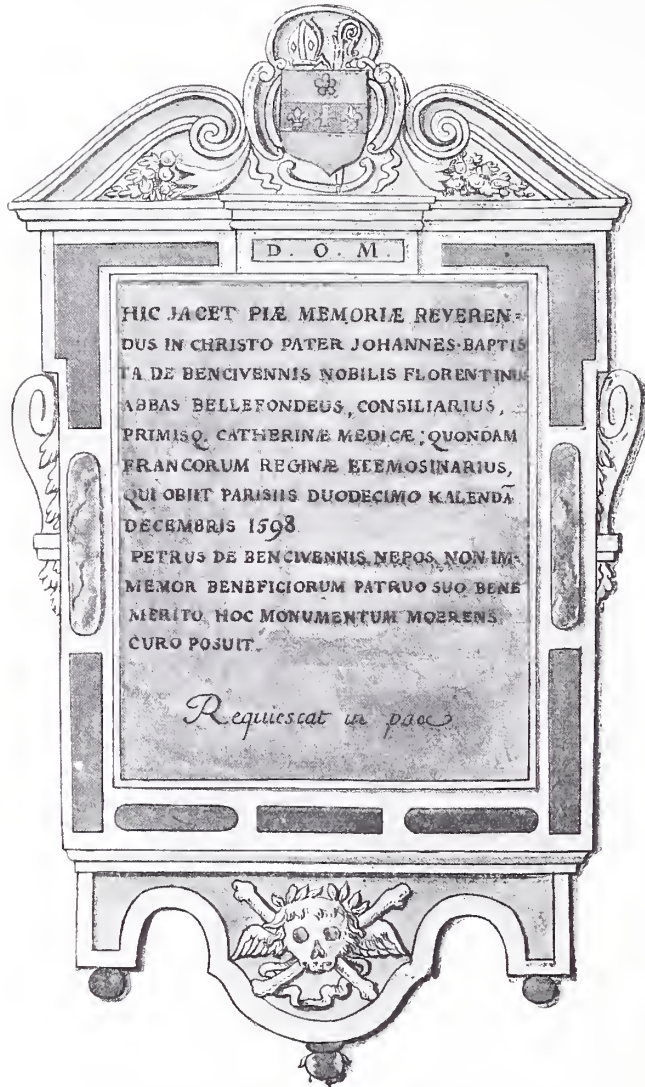 D. O. M.
HIC JACET PIÆ MEMORIÆ REVEREN=
DUS IN CHRISTO PATER JOHANNES-BAPTIS
TA DE BENCIVENNIS NOBILIS FLORENTINUS
ABBAS BELLEFONDEUS, CONSILIARIUS,
PRIMISQ. CATHERINÆ MEDICÆ; QUONDAM
FRANCORUM REGINÆ ELEMOSINARIUS,
QUI OBIIT PARISIIS DUODECIMO KALENDÃ
DECEMBRIS 1598
PETRUS DE BENCIVENNIS NEPOS NON IM-
MEMOR BENEFICIORUM PATRUO SUO BENE
MERITO, HOC MONUMENTUM MOERENS
CURO POSUIT.
Requiescat in pace